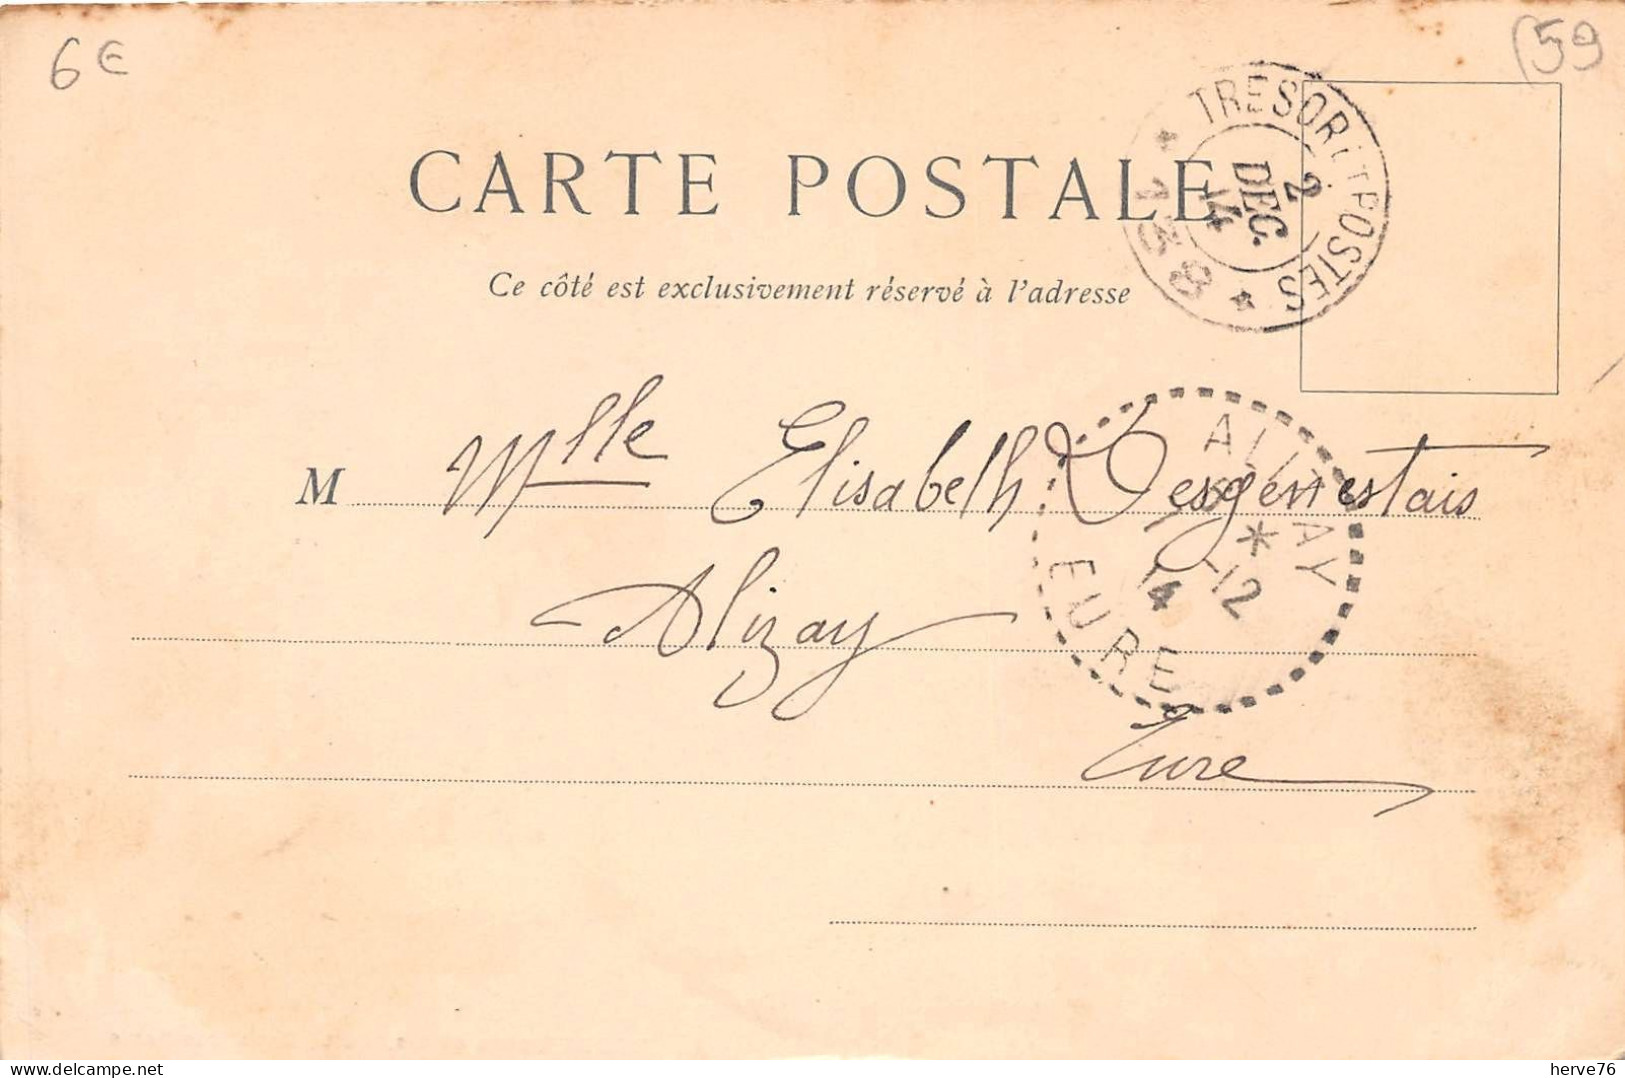 6€
(59
CARTE POSTALE
TRESOR ET POSTES
2
DEC.
14
* 138 *
Ce côté est exclusivement réservé à l'adresse
M Mlle Elisabeth Desgenestais
ALIZAY
* -12
14
EURE
Alizay
Eure
www.delcampe.net
herve76